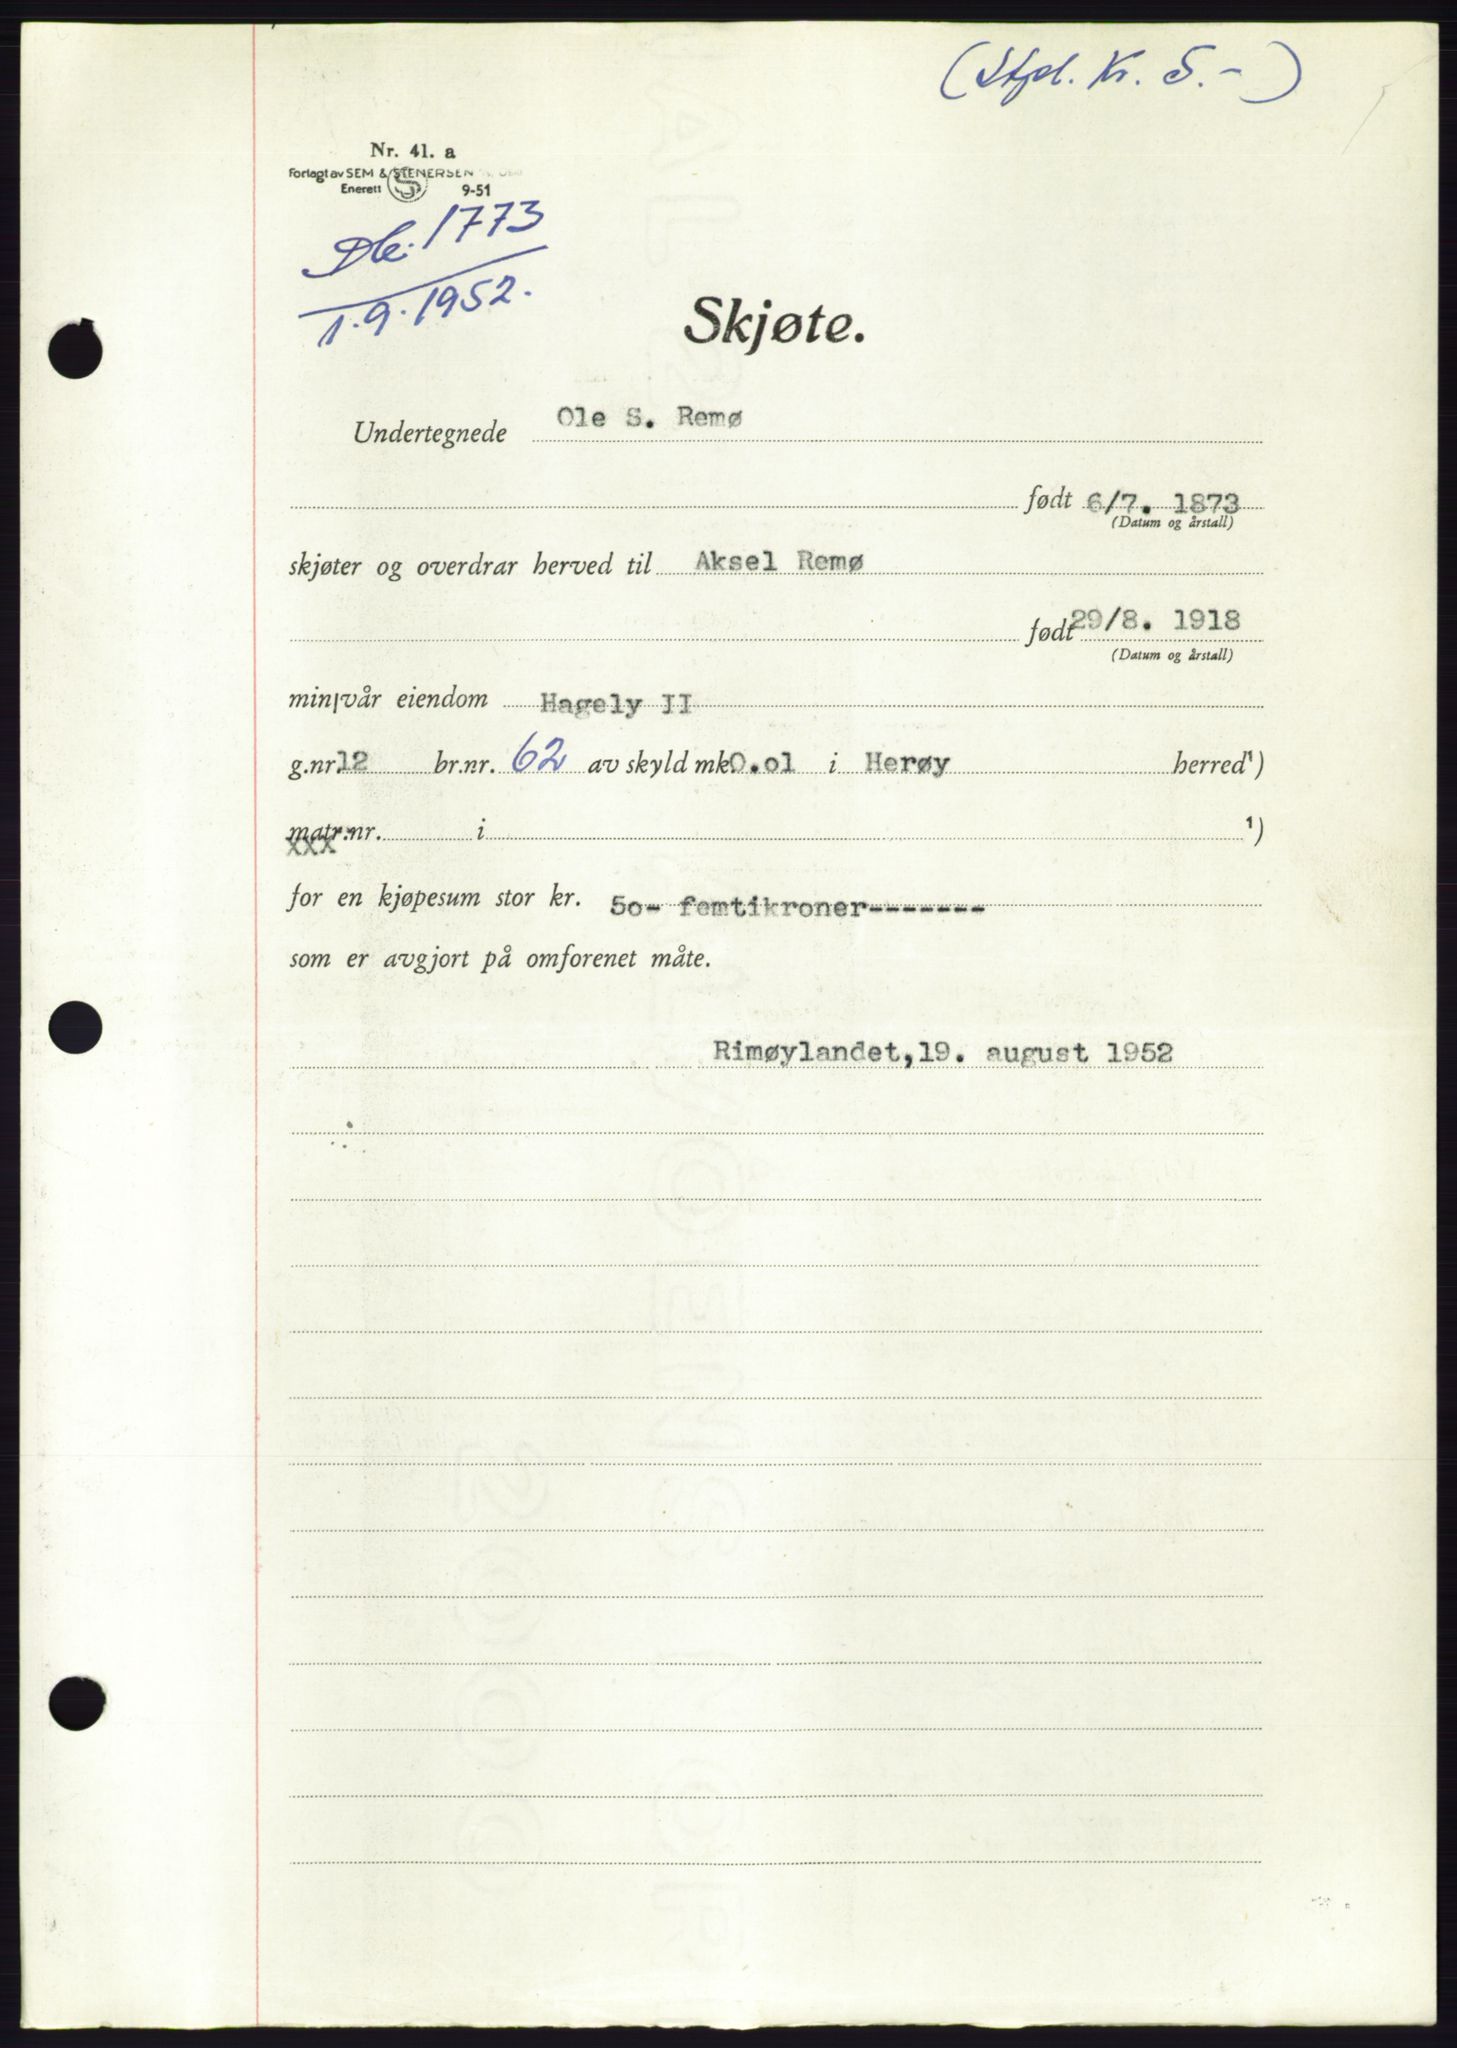 (Stpl. Kr. 5.-)
Nr. 41. a
Forlagt av SEM & STENERSEN
Enerett 9-51
Db. 1773
1.9.1952.
Skjøte.
Undertegnede Ole S. Remø
født 6/7. 1873
(Datum og årstall)
skjøter og overdrar herved til Aksel Remø
født 29/8. 1918
(Datum og årstall)
min/vår eiendom Hagely II
g.nr. 12 br.nr. 62 av skyld mk. 0.01 i Herøy herred¹)
matr.nr. i ¹)
xxx
for en kjøpesum stor kr. 50- femtikroner-------
som er avgjort på omforenet måte.
Rimøylandet, 19. august 1952